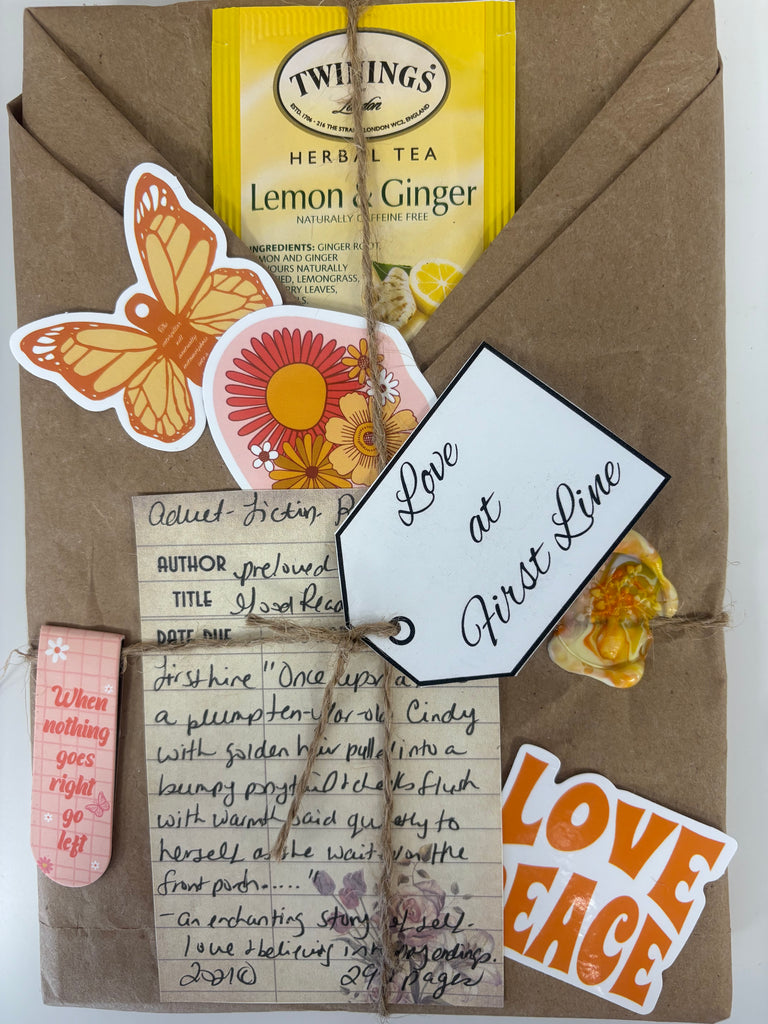 TWININGS
of London
ESTD. 1706 - 216 THE STRAND LONDON WC2, ENGLAND
HERBAL TEA
Lemon & Ginger
NATURALLY CAFFEINE FREE
INGREDIENTS: GINGER ROOT,
LEMON AND GINGER
FLAVOURS NATURALLY
LEMONGRASS,
LEAVES,
Love
at
First Line
Adult-Fiction
AUTHOR preloved
TITLE Good Read
DATE DUE
first line "Once upon a
a plump ten-year-old Cindy
with golden hair pulled into a
bumpy ponytail & cheeks flush
with warmth said quietly to
herself as she waits on the
front porch....."
-an enchanting story of self-
love & believing in
endings.
2021
pages
When
nothing
goes
right
go
left
LOVE
PEACE